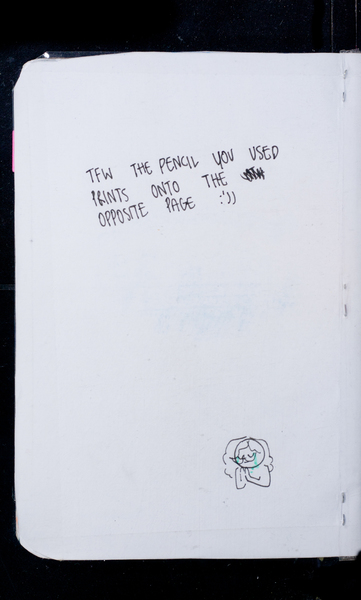 TFW THE PENCIL YOU USED
PRINTS ONTO THE
OPPOSITE PAGE :'))